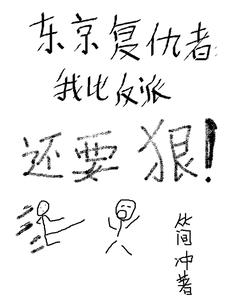 东京复仇者:
我比反派
还要狠!
丛间冲著